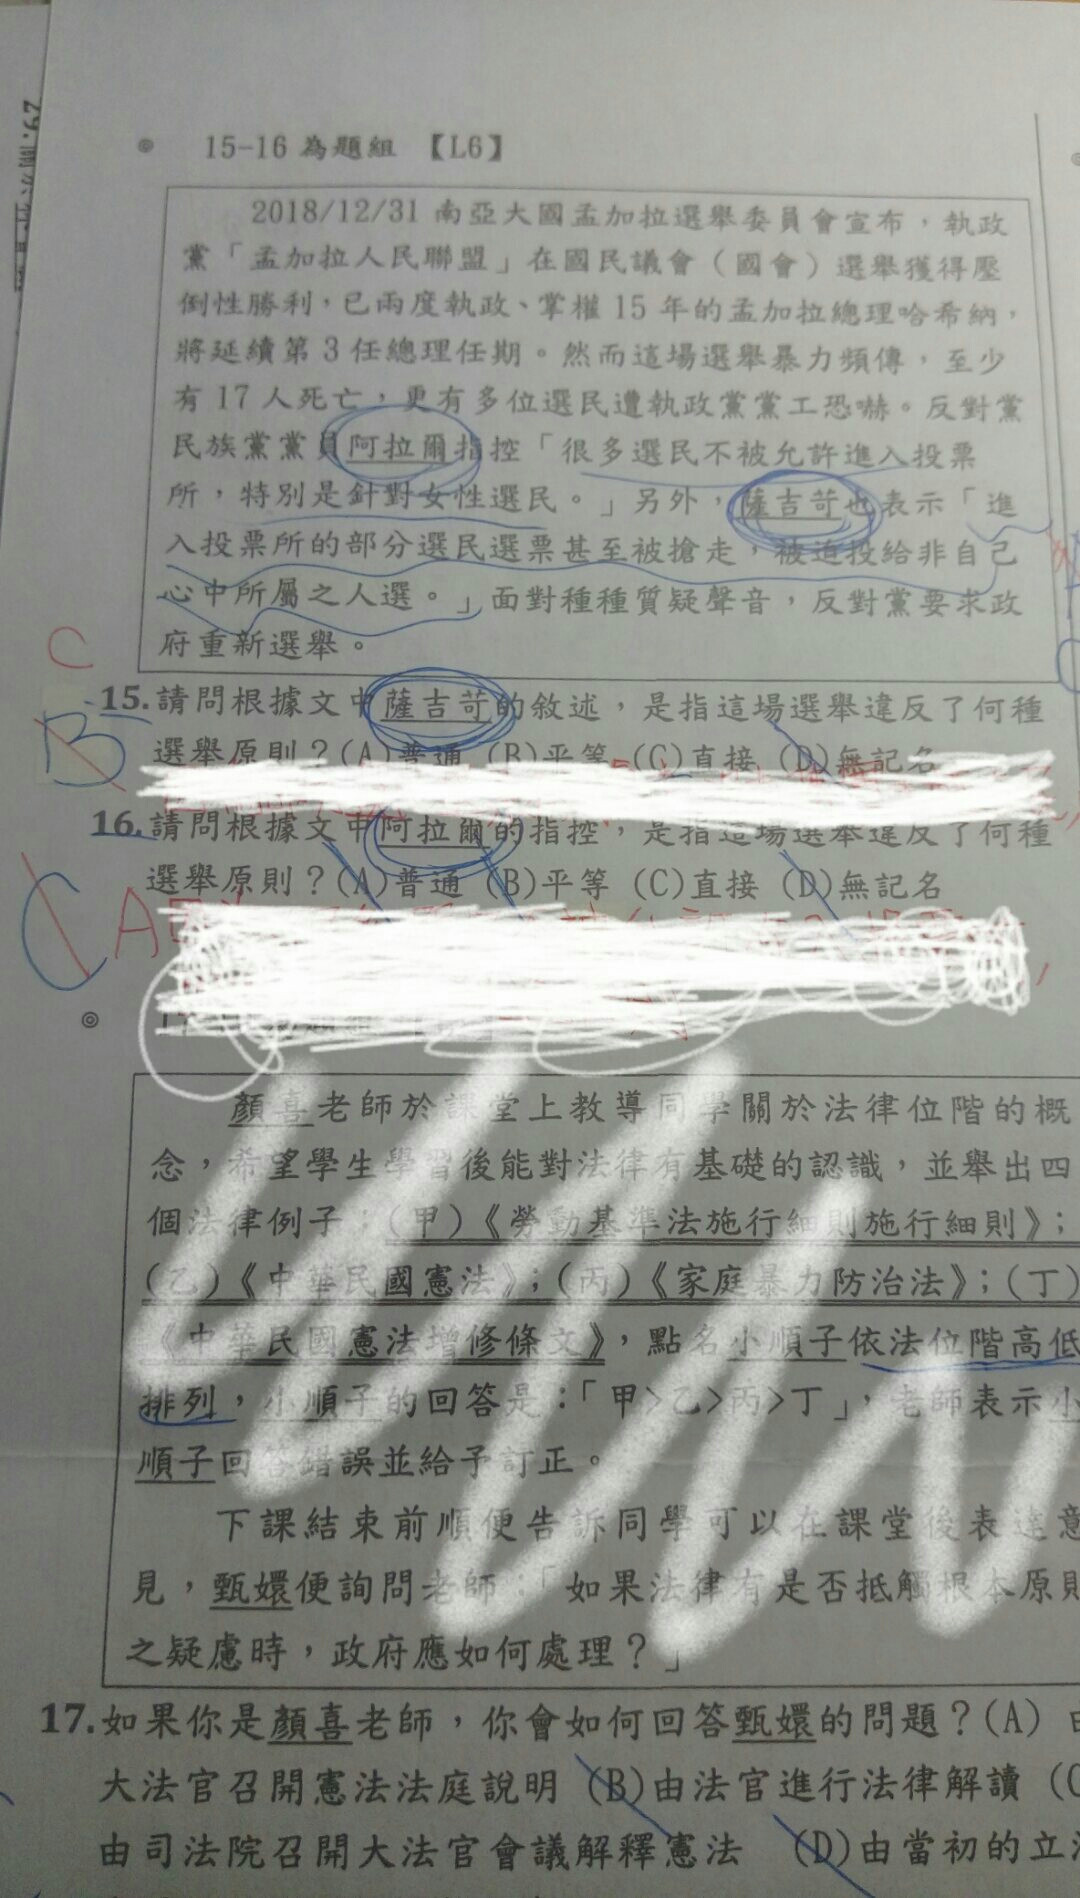 15-16 為題組 【L6】
2018/12/31 南亞大國孟加拉選舉委員會宣布，執政
黨「孟加拉人民聯盟」在國民議會（國會）選舉獲得壓
倒性勝利，已兩度執政、掌權 15 年的孟加拉總理哈希納，
將延續第 3 任總理任期。然而這場選舉暴力頻傳，至少
有 17 人死亡，更有多位選民遭執政黨黨工恐嚇。反對黨
民族黨黨員阿拉爾指控「很多選民不被允許進入投票
所，特別是針對女性選民。」另外，薩吉苛也表示「進
入投票所的部分選民選票甚至被搶走，被迫投給非自己
心中所屬之人選。」面對種種質疑聲音，反對黨要求政
府重新選舉。
C
B
15.請問根據文中薩吉苛的敘述，是指這場選舉違反了何種
選舉原則？(A)普通 (B)平等 (C)直接 (D)無記名
16.請問根據文中阿拉爾的指控，是指這場選舉違反了何種
選舉原則？(A)普通 (B)平等 (C)直接 (D)無記名
C A
顏喜老師於課堂上教導同學關於法律位階的概
念，希望學生學習後能對法律有基礎的認識，並舉出四
個法律例子：(甲)《勞動基準法施行細則施行細則》；
(乙)《中華民國憲法》；(丙)《家庭暴力防治法》；(丁)
《中華民國憲法增修條文》，點名小順子依法位階高低
排列，小順子的回答是：「甲>乙>丙>丁」，老師表示小
順子回答錯誤並給予訂正。
下課結束前順便告訴同學可以在課堂後表達意
見，甄嬛便詢問老師：「如果法律有是否抵觸根本原則
之疑慮時，政府應如何處理？」
17.如果你是顏喜老師，你會如何回答甄嬛的問題？(A)
大法官召開憲法法庭說明 (B)由法官進行法律解讀 (C
由司法院召開大法官會議解釋憲法 (D)由當初的立